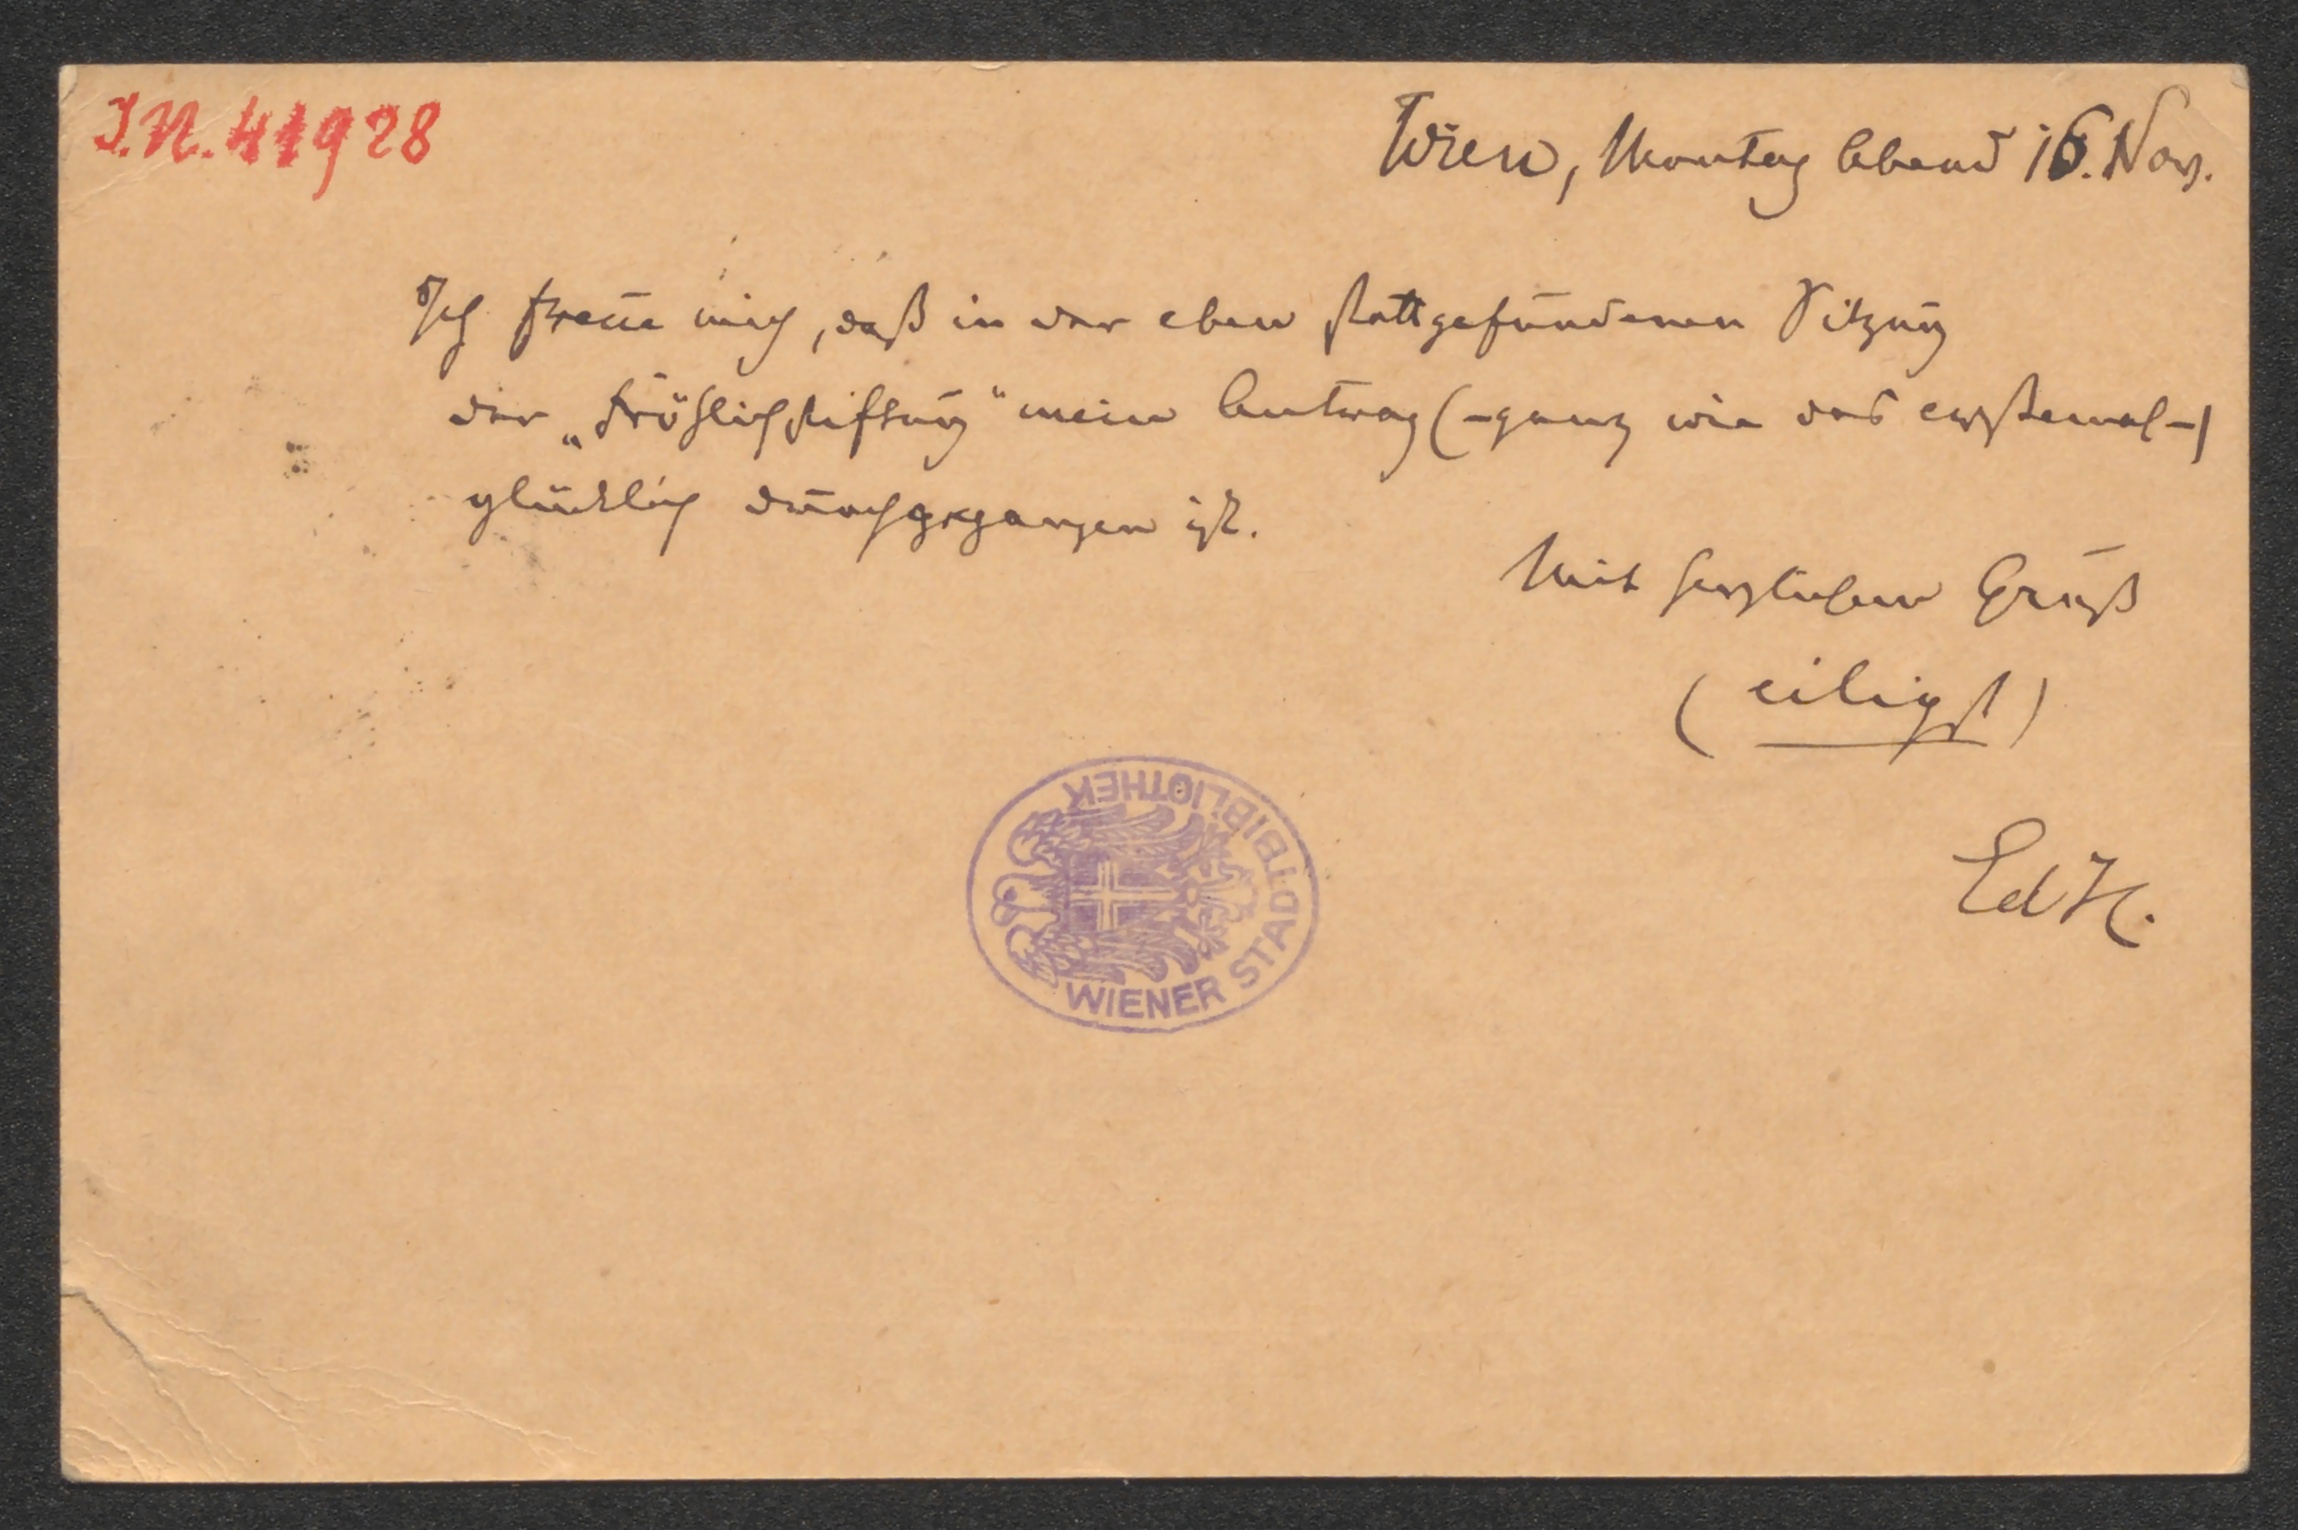 I.N. 41928
Wien, Montag Abend 16. Nov.
Ich freue mich, daß in der eben stattgefundenen Sitzung
der „Fröhlichstiftung" mein Antrag (–ganz wie das erstemal–)
glücklich durchgegangen ist.
Mit herzlichem Gruß
(eiligst)
Ed H.
WIENER STADTBIBLIOTHEK